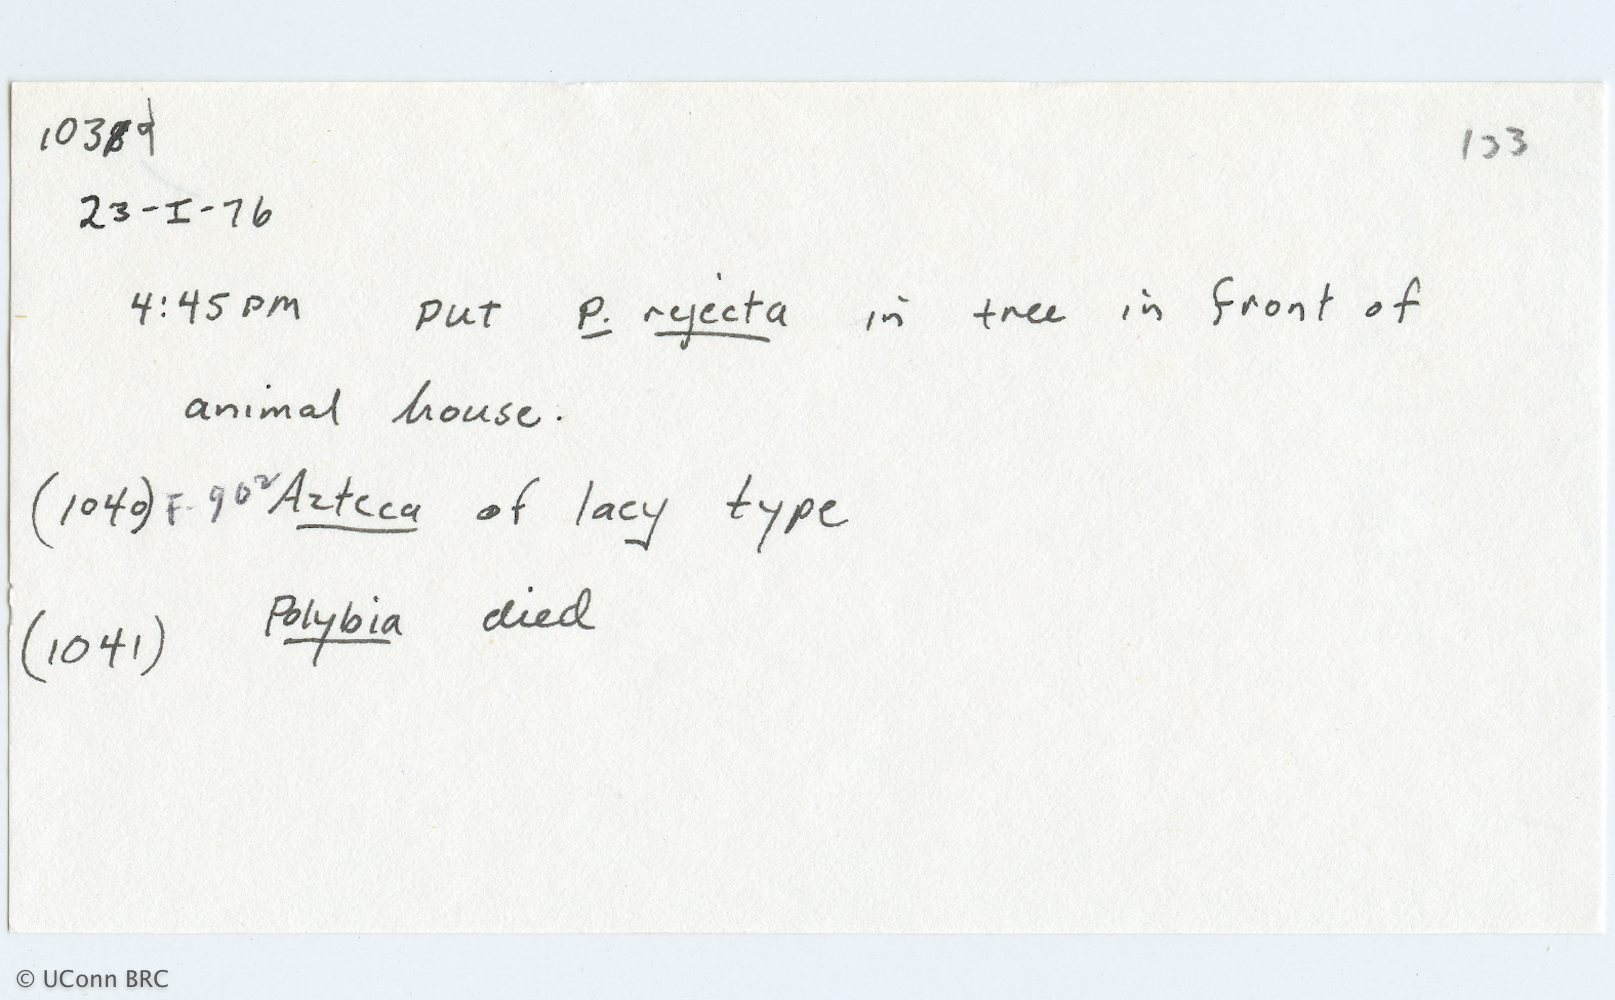 1039 133
23-I-76
4:45 PM put P. rejecta in tree in front of
animal house.
(1040) F. 902 Azteca of lacy type
(1041) Polybia died
© UConn BRC